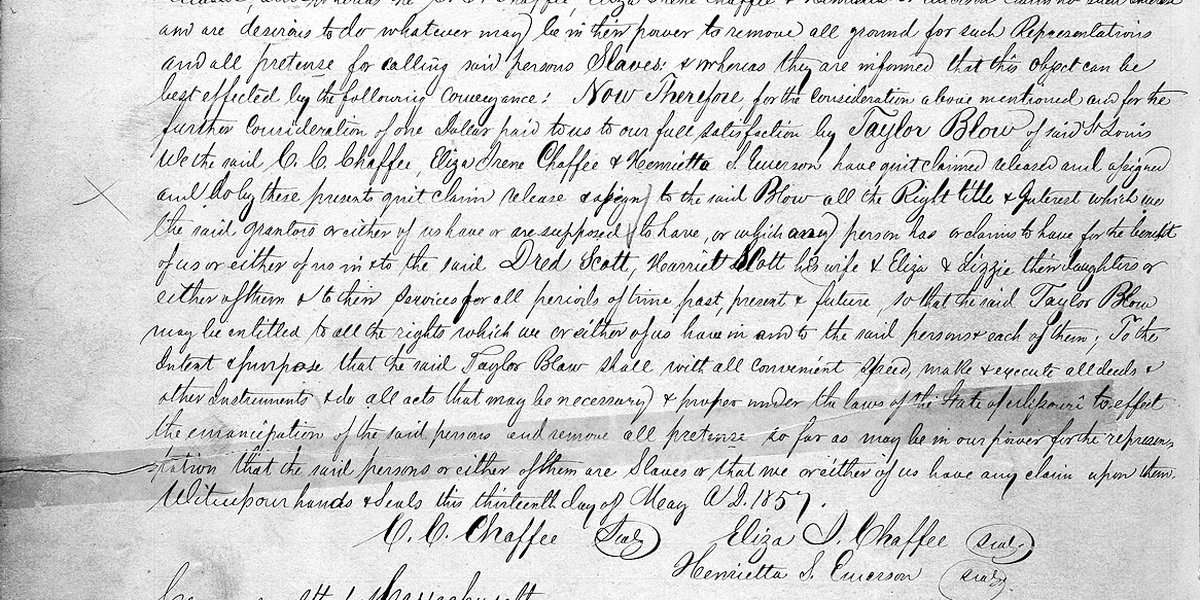 whereas he C. C. Chaffee, Eliza Irene Chaffee & Henrietta S. Emerson claim no such Interest
and are desirous to do whatever may be in their power to remove all ground for such Representations
and all pretense for calling said persons Slaves: & whereas they are informed that this object can be
best effected by the following conveyance: Now Therefore, for the consideration above mentioned and for the
further Consideration of one Dollar paid to us to our full satisfaction by Taylor Blow of said St Louis
We the said C. C. Chaffee, Eliza Irene Chaffee & Henrietta S. Emerson have quit claimed released and asigned
and do by these presents quit claim release & asign to the said Blow all the Right title & Interest which we
the said grantors or either of us have or are supposed to have, or which any person has or claims to have for the benefit
of us or either of us in & to the said Dred Scott, Harriett Scott his wife & Eliza & Lizzie their daughters or
either of them & to their services for all periods of time past, present & future, so that the said Taylor Blow
may be entitled to all the rights which we or either of us have in and to the said persons & each of them; To the
Intent & purpose that he said Taylor Blow shall with all convenient speed, make & execute all deeds &
other Instruments & do all acts that may be necessary & proper under the laws of the State of Missouri to effect
the emancipation of the said persons and remove all pretense so far as may be in our power for the represen-
tation that the said persons or either of them are Slaves or that we or either of us have any claim upon them.
Witness our hands & Seals this thirteenth day of May A D. 1857.
C. C. Chaffee Seal Eliza I. Chaffee Seal
Henrietta S. Emerson Seal
Massachusetts